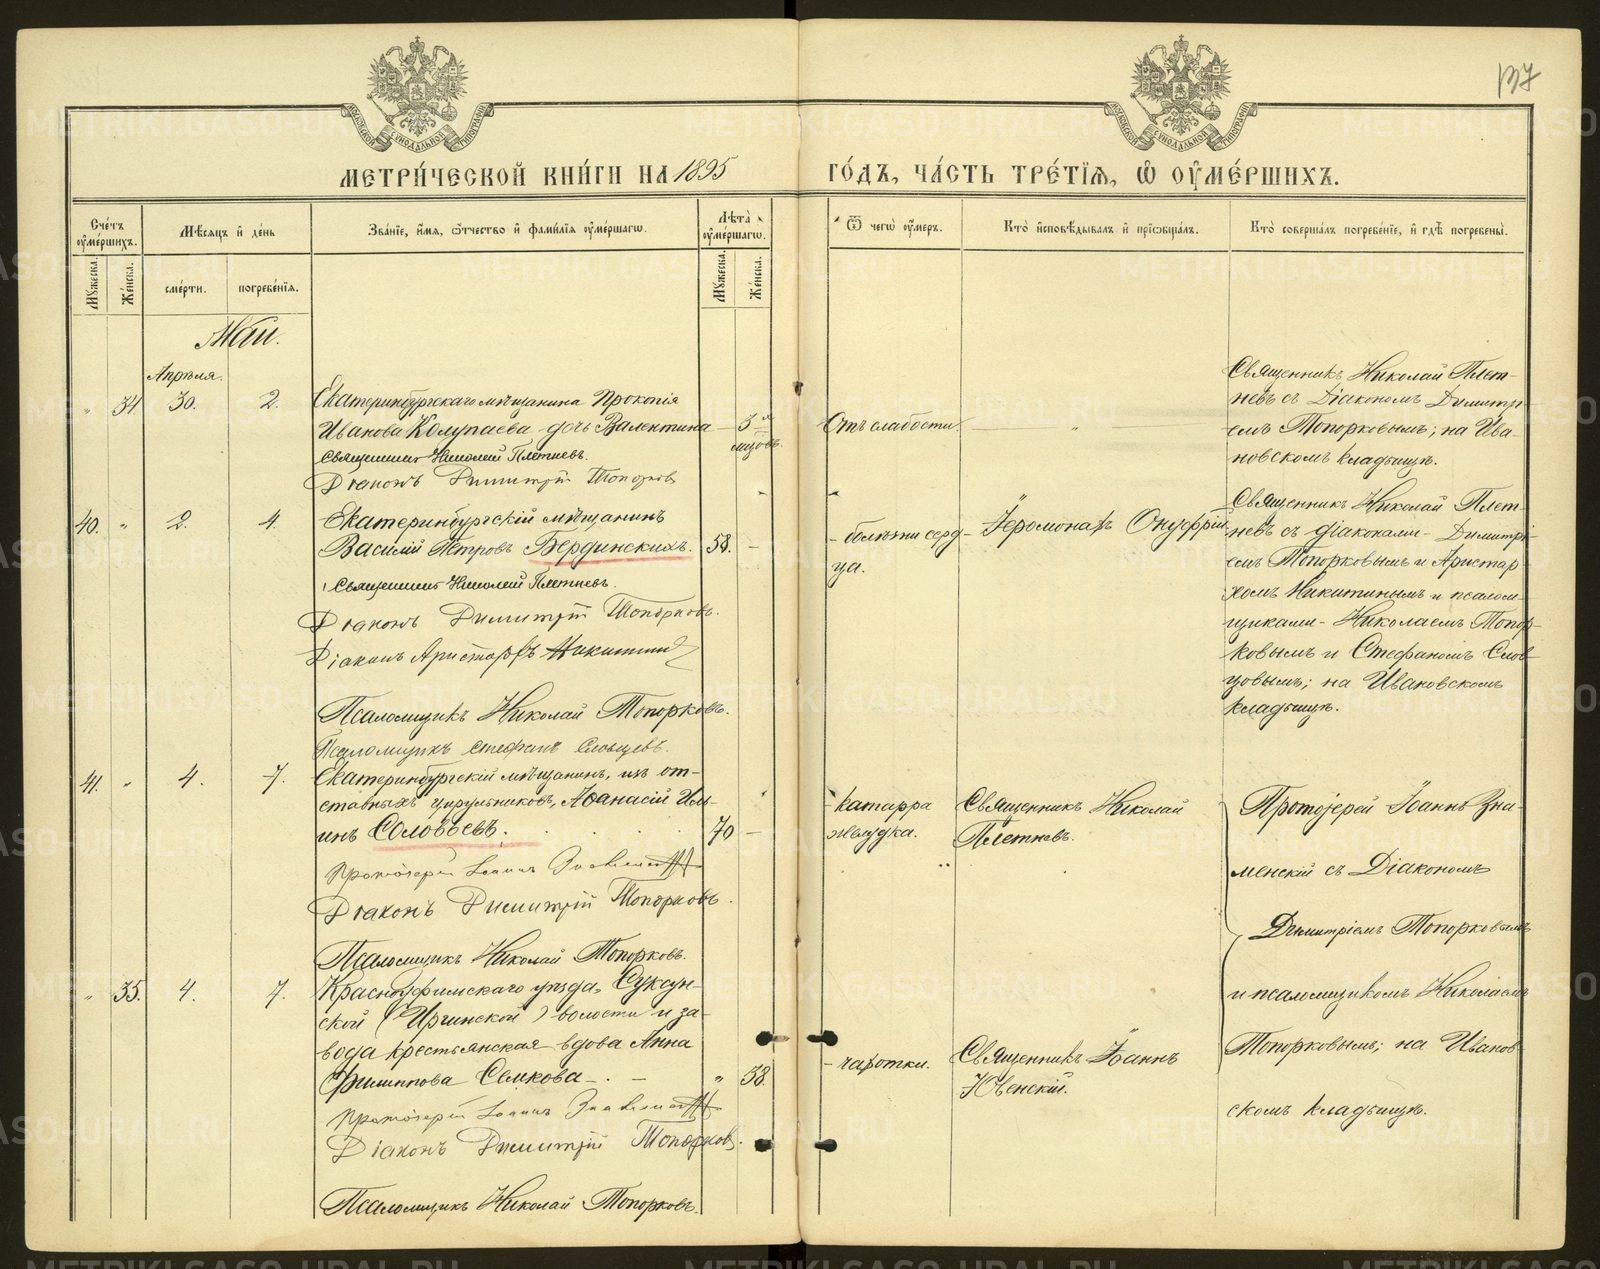 137
МЕТРИ́ЧЕСКОЙ КНИ́ГИ НА 1895
ГО́ДЪ, ЧА́СТЬ ТРЕ́ТЇѦ, Ѡ҆ ОУ҆МЕ́РШИХЪ.
Сче́тъ оу҆ме́ршихъ.
Мѣ́сѧцъ и҆ де́нь
Зва́нїе, и҆́мѧ, ѻ҆́тчество и҆ фами́лїѧ оу҆ме́ршагѡ.
Лѣ́та оу҆ме́ршагѡ.
Ѿ чегѡ̀ оу҆́меръ.
Кто̀ и҆сповѣ́дывалъ и҆ прїѡбща́лъ.
Кто̀ соверша́лъ погребе́нїе, и҆ гдѣ̀ погребены̀.
Мꙋ́жеска.
Же́нска.
сме́рти.
погребе́нїѧ.
Мꙋ́жеска.
Же́нска.
Май.
Апрѣля.
" 34 30. 2.
Екатеринбургскаго мѣщанина Прокопія
Иванова Колупаева дочь Валентина
Священникъ Николай Плетневъ.
Діаконъ Димитрій Топорковъ
Отъ слабости.
Священникъ Николай Плет-
невъ съ Діакономъ Димитрі-
емъ Топорковымъ; на Ива-
новскомъ кладбищѣ.
40. " 2. 4.
Екатеринбургскій мѣщанинъ
Василій Петровъ Бердинскихъ. 58. -
Священникъ Николай Плетневъ.
Діаконъ Димитрій Топорковъ.
Діаконъ Аристархъ Никитинъ
Псаломщикъ Николай Топорковъ.
Псаломщикъ Стефанъ Словцевъ.
- болѣзни серд-
ца.
Іеромонахъ Онуфрій
Священникъ Николай Плет-
невъ съ діаконами - Димитрі-
емъ Топорковымъ и Аристар-
хомъ Никитинымъ и псалом-
щиками - Николаемъ Топор-
ковымъ и Стефаномъ Слов-
цовымъ; на Ивановскомъ
кладбищѣ.
41. " 4. 7.
Екатеринбургскій мѣщанинъ, изъ от-
ставныхъ цирульниковъ, Аѳанасій Иль-
инъ Соловьевъ. 70 -
Протоіерей Іоаннъ Знаменскій
Діаконъ Димитрій Топорковъ.
Псаломщикъ Николай Топорковъ.
катарра
желудка.
Священникъ Николай
Плетневъ.
Протоіерей Іоаннъ Зна-
менскій съ Діакономъ
Димитріемъ Топорковымъ
и псаломщикомъ Николаемъ
Топорковымъ; на Иванов-
скомъ кладбищѣ.
" 35. 4. 7.
Красноуфимскаго уѣзда, Суксун-
ской (Иргинской) волости и за-
вода крестьянская вдова Анна
Филиппова Семкова - . - " 58.
Протоіерей Іоаннъ Знаменскій
Діаконъ Димитрій Топорковъ.
Псаломщикъ Николай Топорковъ.
- чахотки.
Священникъ Іоаннъ